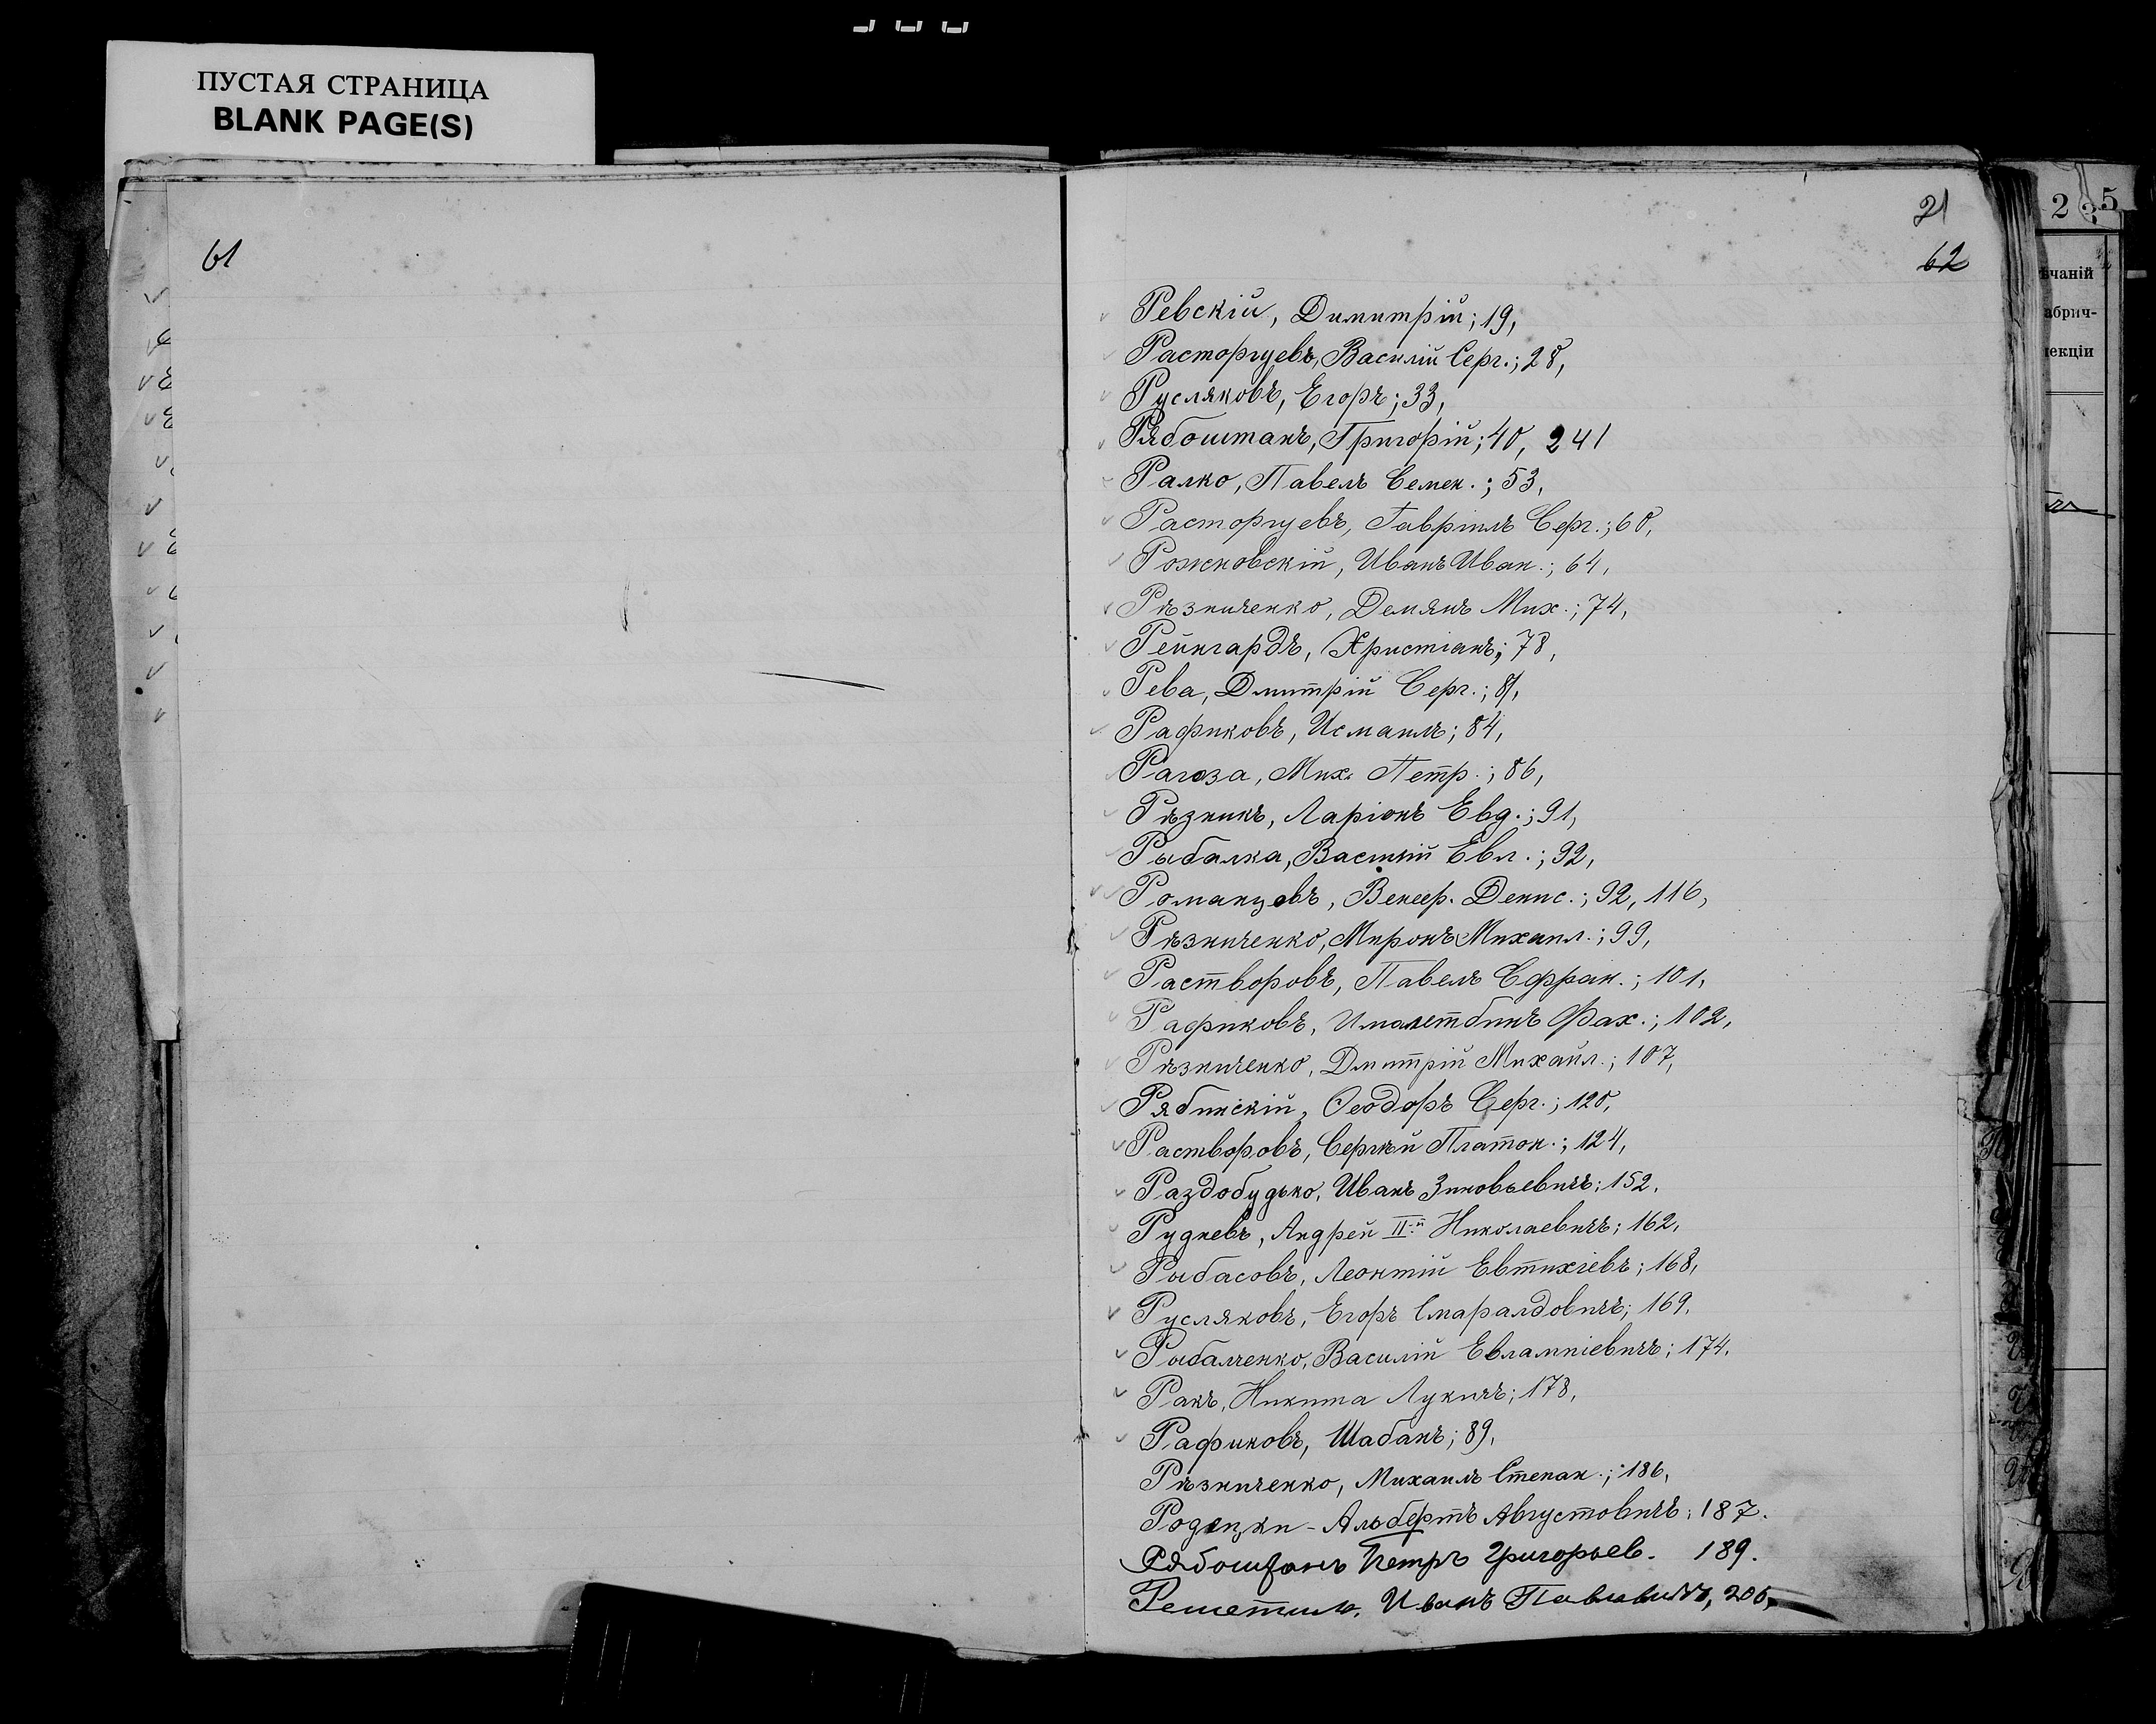 ПУСТАЯ СТРАНИЦА
BLANK PAGE(S)
61
21
62
2 5
ѣчаній
абрич-
пекціи
Ревскій, Димитрій; 19,
Расторгуевъ, Василій Серг.; 28,
Русляковъ, Егоръ; 33,
Рябоштанъ, Григорій; 40, 241
Ралко, Павелъ Семен.; 53,
Расторгуевъ, Гавріилъ Серг.; 60,
Рожновскій, Иванъ Иван.; 64,
Рѣзниченко, Демянъ Мих.; 74,
Рейнгардъ, Христіанъ; 78,
Рева, Дмитрій Серг.; 81,
Рафиковъ, Исмаилъ; 84,
Рагоза, Мих. Петр.; 86,
Рѣзникъ, Ларіонъ Евд.; 91,
Рыбалка, Василій Евл.; 92,
Романцовъ, Денис.; 92, 116,
Рѣзниченко, Миронъ Михаил.; 99,
Растворовъ, Павелъ Ефран.; 101,
Рафиковъ, Фах.; 102,
Рѣзниченко, Дмитрій Михаил.; 107,
Рябинскій, Ѳеодоръ Серг.; 120,
Растворовъ, Сергѣй Платон.; 124,
Раздобудько, Иванъ Зиновьевичъ; 152,
Рудневъ, Андрей II-й Николаевичъ; 162,
Рыбасовъ, Леонтій Евтихіевъ; 168,
Русляковъ, Егоръ Смаралдовичъ; 169,
Рыбалченко, Василій Евлампіевичъ; 174,
Ракъ, Никита Лукичъ; 178,
Рафиковъ, Шабанъ; 89,
Рѣзниченко, Михаилъ Степан.; 186,
Родецки - Альбертъ Августовичъ; 187.
Рябоштанъ Петръ Григорьев. 189.
Иванъ Павловичъ, 206,